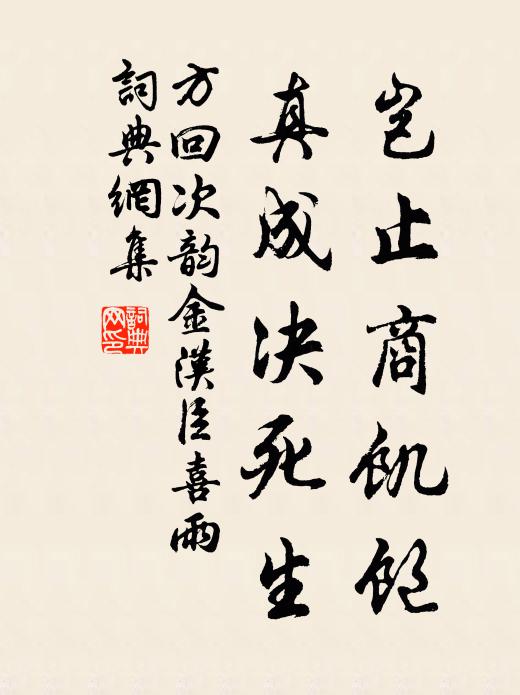 岂止商饥饱
真成决死生
方回次韵金漢臣喜雨
詞典網集
詞典网印